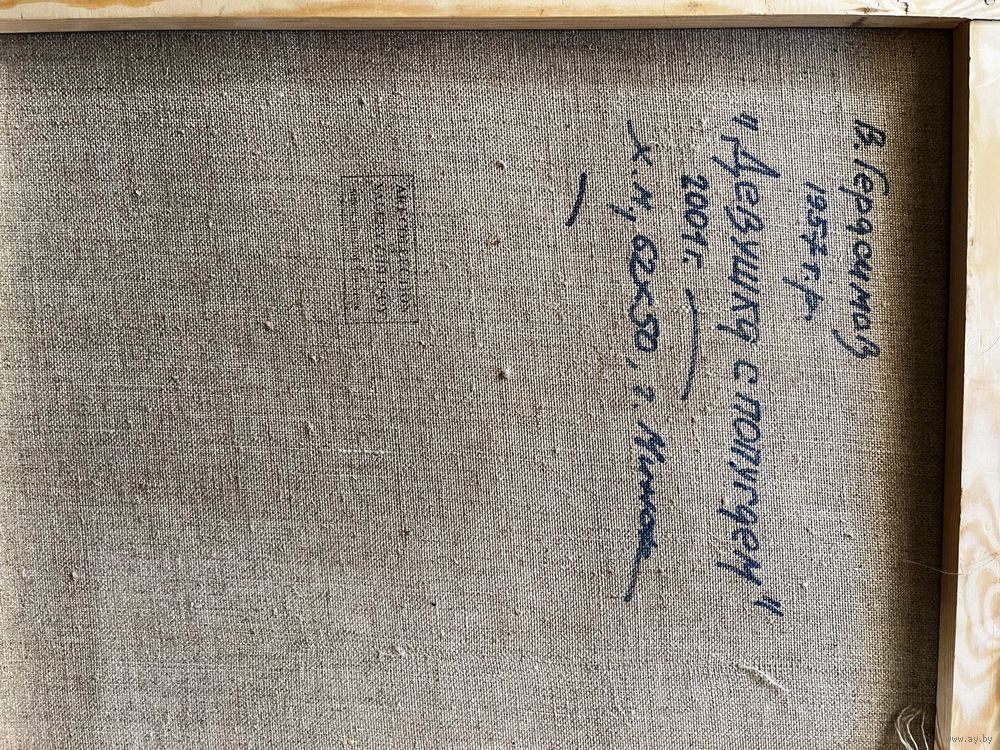 В. Герасимов
1957 г.р.
"Девушка с попугаем"
2001 г.
х.м, 62x50, г. Минск
www.ay.by